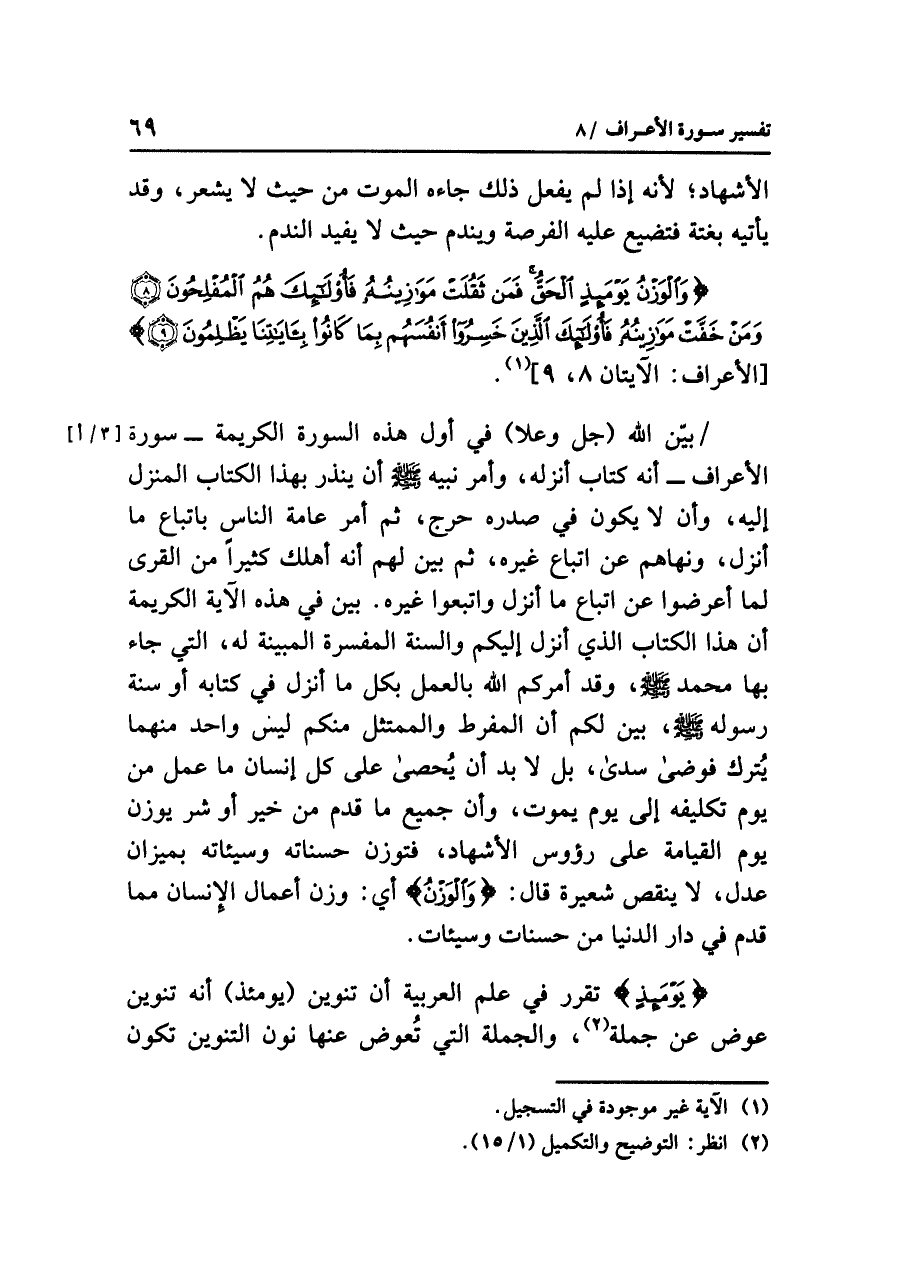 تفسير سورة الأعراف /٨ ٦٩
الأشهاد؛ لأنه إذا لم يفعل ذلك جاءه الموت من حيث لا يشعر، وقد
يأتيه بغتة فتضيع عليه الفرصة ويندم حيث لا يفيد الندم.
﴿وَٱلْوَزْنُ يَوْمَئِذٍ ٱلْحَقُّ ۚ فَمَن ثَقُلَتْ مَوَٰزِينُهُۥ فَأُو۟لَٰٓئِكَ هُمُ ٱلْمُفْلِحُونَ ٨
وَمَنْ خَفَّتْ مَوَٰزِينُهُۥ فَأُو۟لَٰٓئِكَ ٱلَّذِينَ خَسِرُوٓا۟ أَنفُسَهُم بِمَا كَانُوا۟ بِـَٔايَٰتِنَا يَظْلِمُونَ ٩﴾
[الأعراف: الآيتان ٨، ٩](١).
/بيّن الله (جل وعلا) في أول هذه السورة الكريمة ـ سورة [٣/أ]
الأعراف ـ أنه كتاب أنزله، وأمر نبيه ﷺ أن ينذر بهذا الكتاب المنزل
إليه، وأن لا يكون في صدره حرج، ثم أمر عامة الناس باتباع ما
أنزل، ونهاهم عن اتباع غيره، ثم بين لهم أنه أهلك كثيراً من القرى
لما أعرضوا عن اتباع ما أنزل واتبعوا غيره. بين في هذه الآية الكريمة
أن هذا الكتاب الذي أنزل إليكم والسنة المفسرة المبينة له، التي جاء
بها محمد ﷺ، وقد أمركم الله بالعمل بكل ما أنزل في كتابه أو سنة
رسوله ﷺ، بين لكم أن المفرط والممتثل منكم ليس واحد منهما
يُترك فوضىٰ سدىٰ، بل لا بد أن يُحصىٰ على كل إنسان ما عمل من
يوم تكليفه إلى يوم يموت، وأن جميع ما قدم من خير أو شر يوزن
يوم القيامة على رؤوس الأشهاد، فتوزن حسناته وسيئاته بميزان
عدل، لا ينقص شعيرة قال: ﴿وَٱلْوَزْنُ﴾ أي: وزن أعمال الإنسان مما
قدم في دار الدنيا من حسنات وسيئات.
﴿يَوْمَئِذٍ﴾ تقرر في علم العربية أن تنوين (يومئذ) أنه تنوين
عوض عن جملة(٢)، والجملة التي تُعوض عنها نون التنوين تكون
(١) الآية غير موجودة في التسجيل.
(٢) انظر: التوضيح والتكميل (١/١٥).